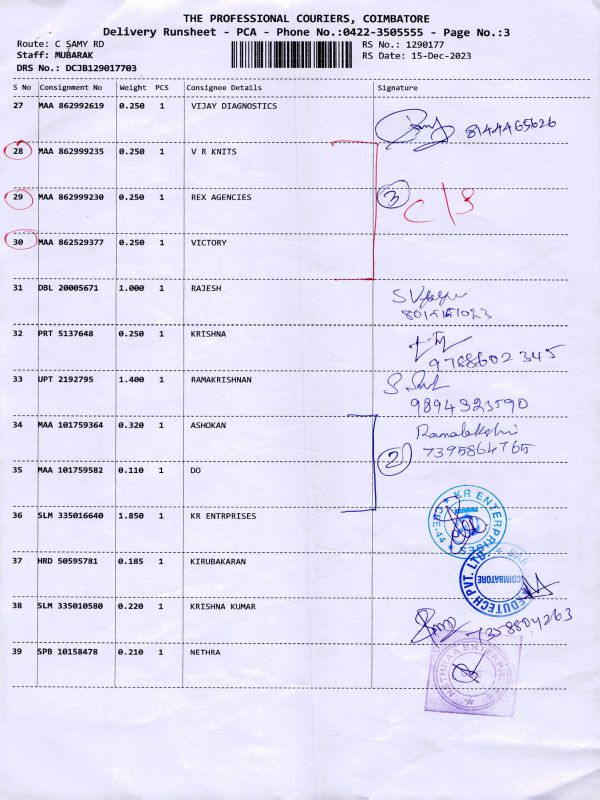 THE PROFESSIONAL COURIERS, COIMBATORE
Delivery Runsheet - PCA - Phone No.:0422-3505555 - Page No.:3
Route: C SAMY RD RS No.: 1290177
Staff: MUBARAK RS Date: 15-Dec-2023
DRS No.: DCJB129017703
S No Consignment No Weight PCS Consignee Details Signature
27 MAA 862992619 0.250 1 VIJAY DIAGNOSTICS
8144465626
28 MAA 862999235 0.250 1 V R KNITS
29 MAA 862999230 0.250 1 REX AGENCIES 3 C/S
30 MAA 862529377 0.250 1 VICTORY
31 DBL 20005671 1.000 1 RAJESH
32 PRT 5137648 0.250 1 KRISHNA
9788602345
33 UPT 2192795 1.400 1 RAMAKRISHNAN
9894323590
34 MAA 101759364 0.320 1 ASHOKAN
7395864765
35 MAA 101759582 0.110 1 DO 2
36 SLM 335016640 1.850 1 KR ENTRPRISES
KR ENTERPRISES CBE-44
37 HRD 50595781 0.185 1 KIRUBAKARAN
EDUTECH PVT. LTD. COIMBATORE
38 SLM 335010580 0.220 1 KRISHNA KUMAR
7358804263
39 SPB 10158478 0.210 1 NETHRA